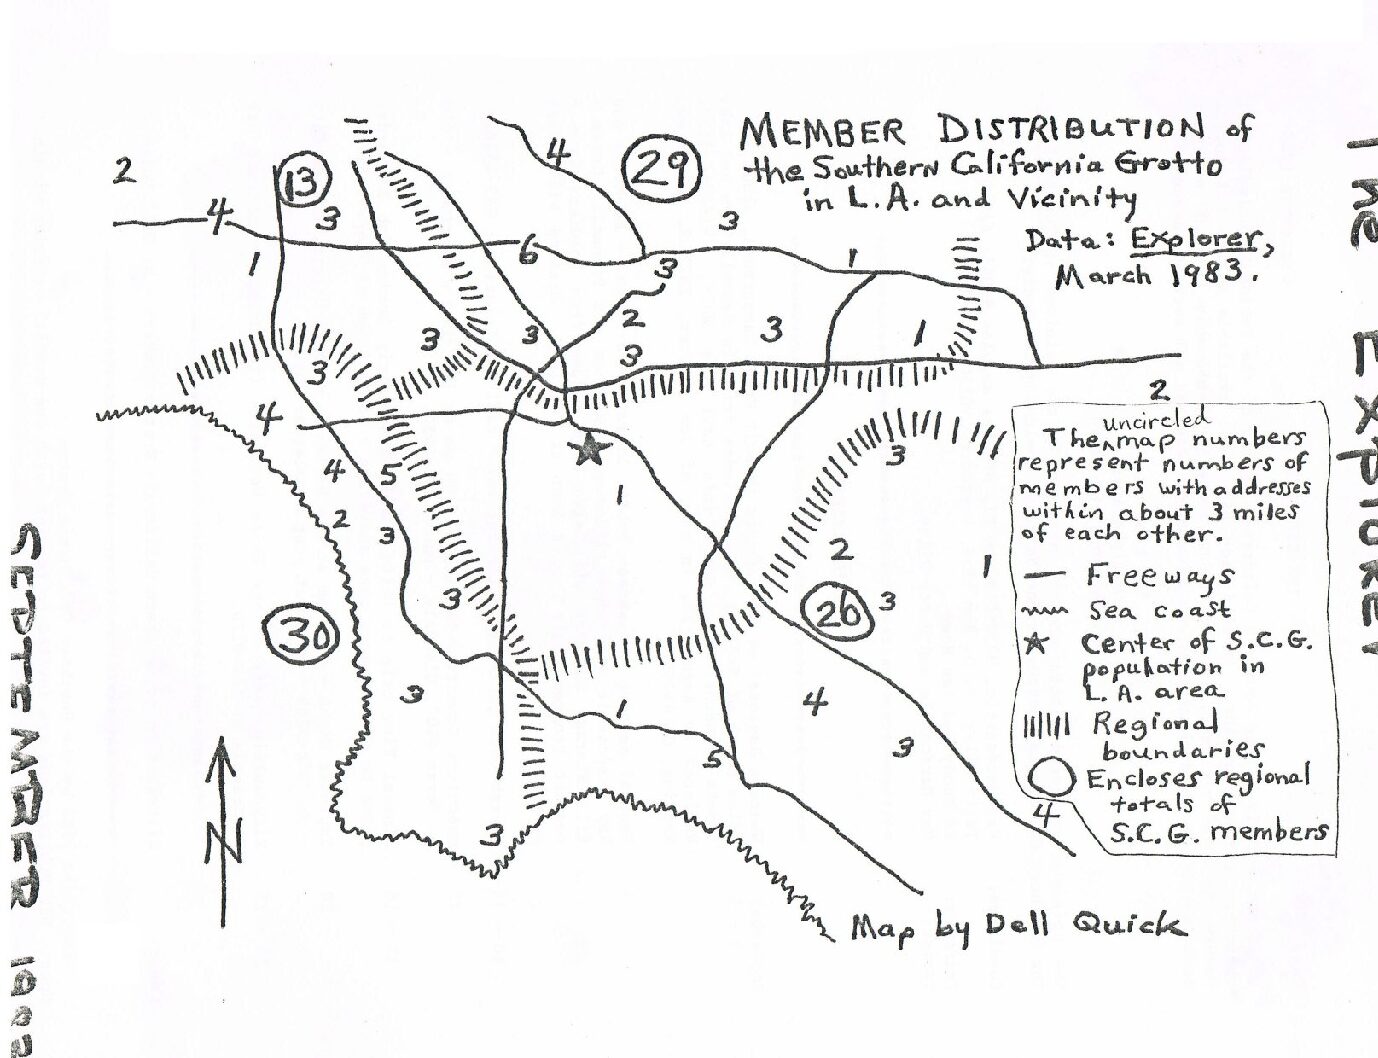 MEMBER DISTRIBUTION of
the Southern California Grotto
in L.A. and Vicinity
Data: Explorer,
March 1983.
2
4
13
3
1
4
29
3
6
3
1
2
3
3
3
3
1
3
4
4
5
2
3
3
30
3
3
1
1
5
2
3
2
26
3
1
4
3
4
uncircled
The^map numbers
represent numbers of
members with addresses
within about 3 miles
of each other.
Freeways
Sea coast
Center of S.C.G.
population in
L.A. area
Regional
boundaries
Encloses regional
totals of
S.C.G. members
N
Map by Dell Quick
SEPTEMBER
THE EXPLORER